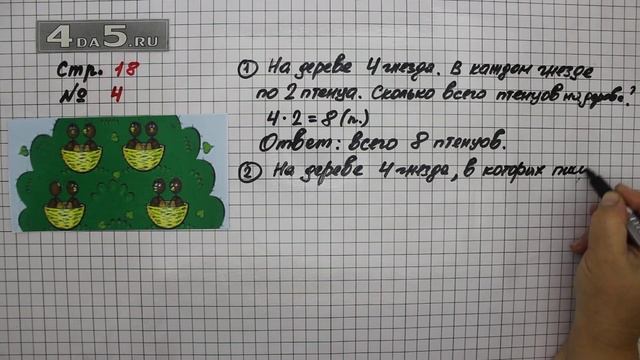 4DA5.RU
Стр. 18
№ 4
① На дереве 4 гнезда. В каждом гнезде
по 2 птенца. Сколько всего птенцов на дереве?
4 · 2 = 8 (п.)
Ответ: всего 8 птенцов.
② На дереве 4 гнезда, в которых